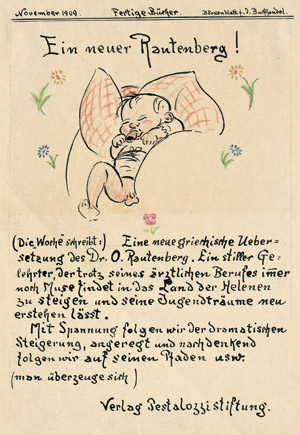 November 1909. Fertige Bücher. Börsenblatt f. d. Buchhandel.
Ein neuer Rautenberg!
(Die Woche schreibt:) Eine neue griechische Ueber-
setzung des Dr. O. Rautenberg. Ein stiller Ge-
lehrter, der trotz seines ärztlichen Berufes im̄er
noch Muse findet in das Land der Helenen
zu steigen und seine Jugendträume neu
erstehen lässt.
Mit Spannung folgen wir der dramatischen
Steigerung, angeregt und nachdenkend
folgen wir auf seinen Pfaden usw.
(man überzeuge sich)
Verlag Pestalozzistiftung.